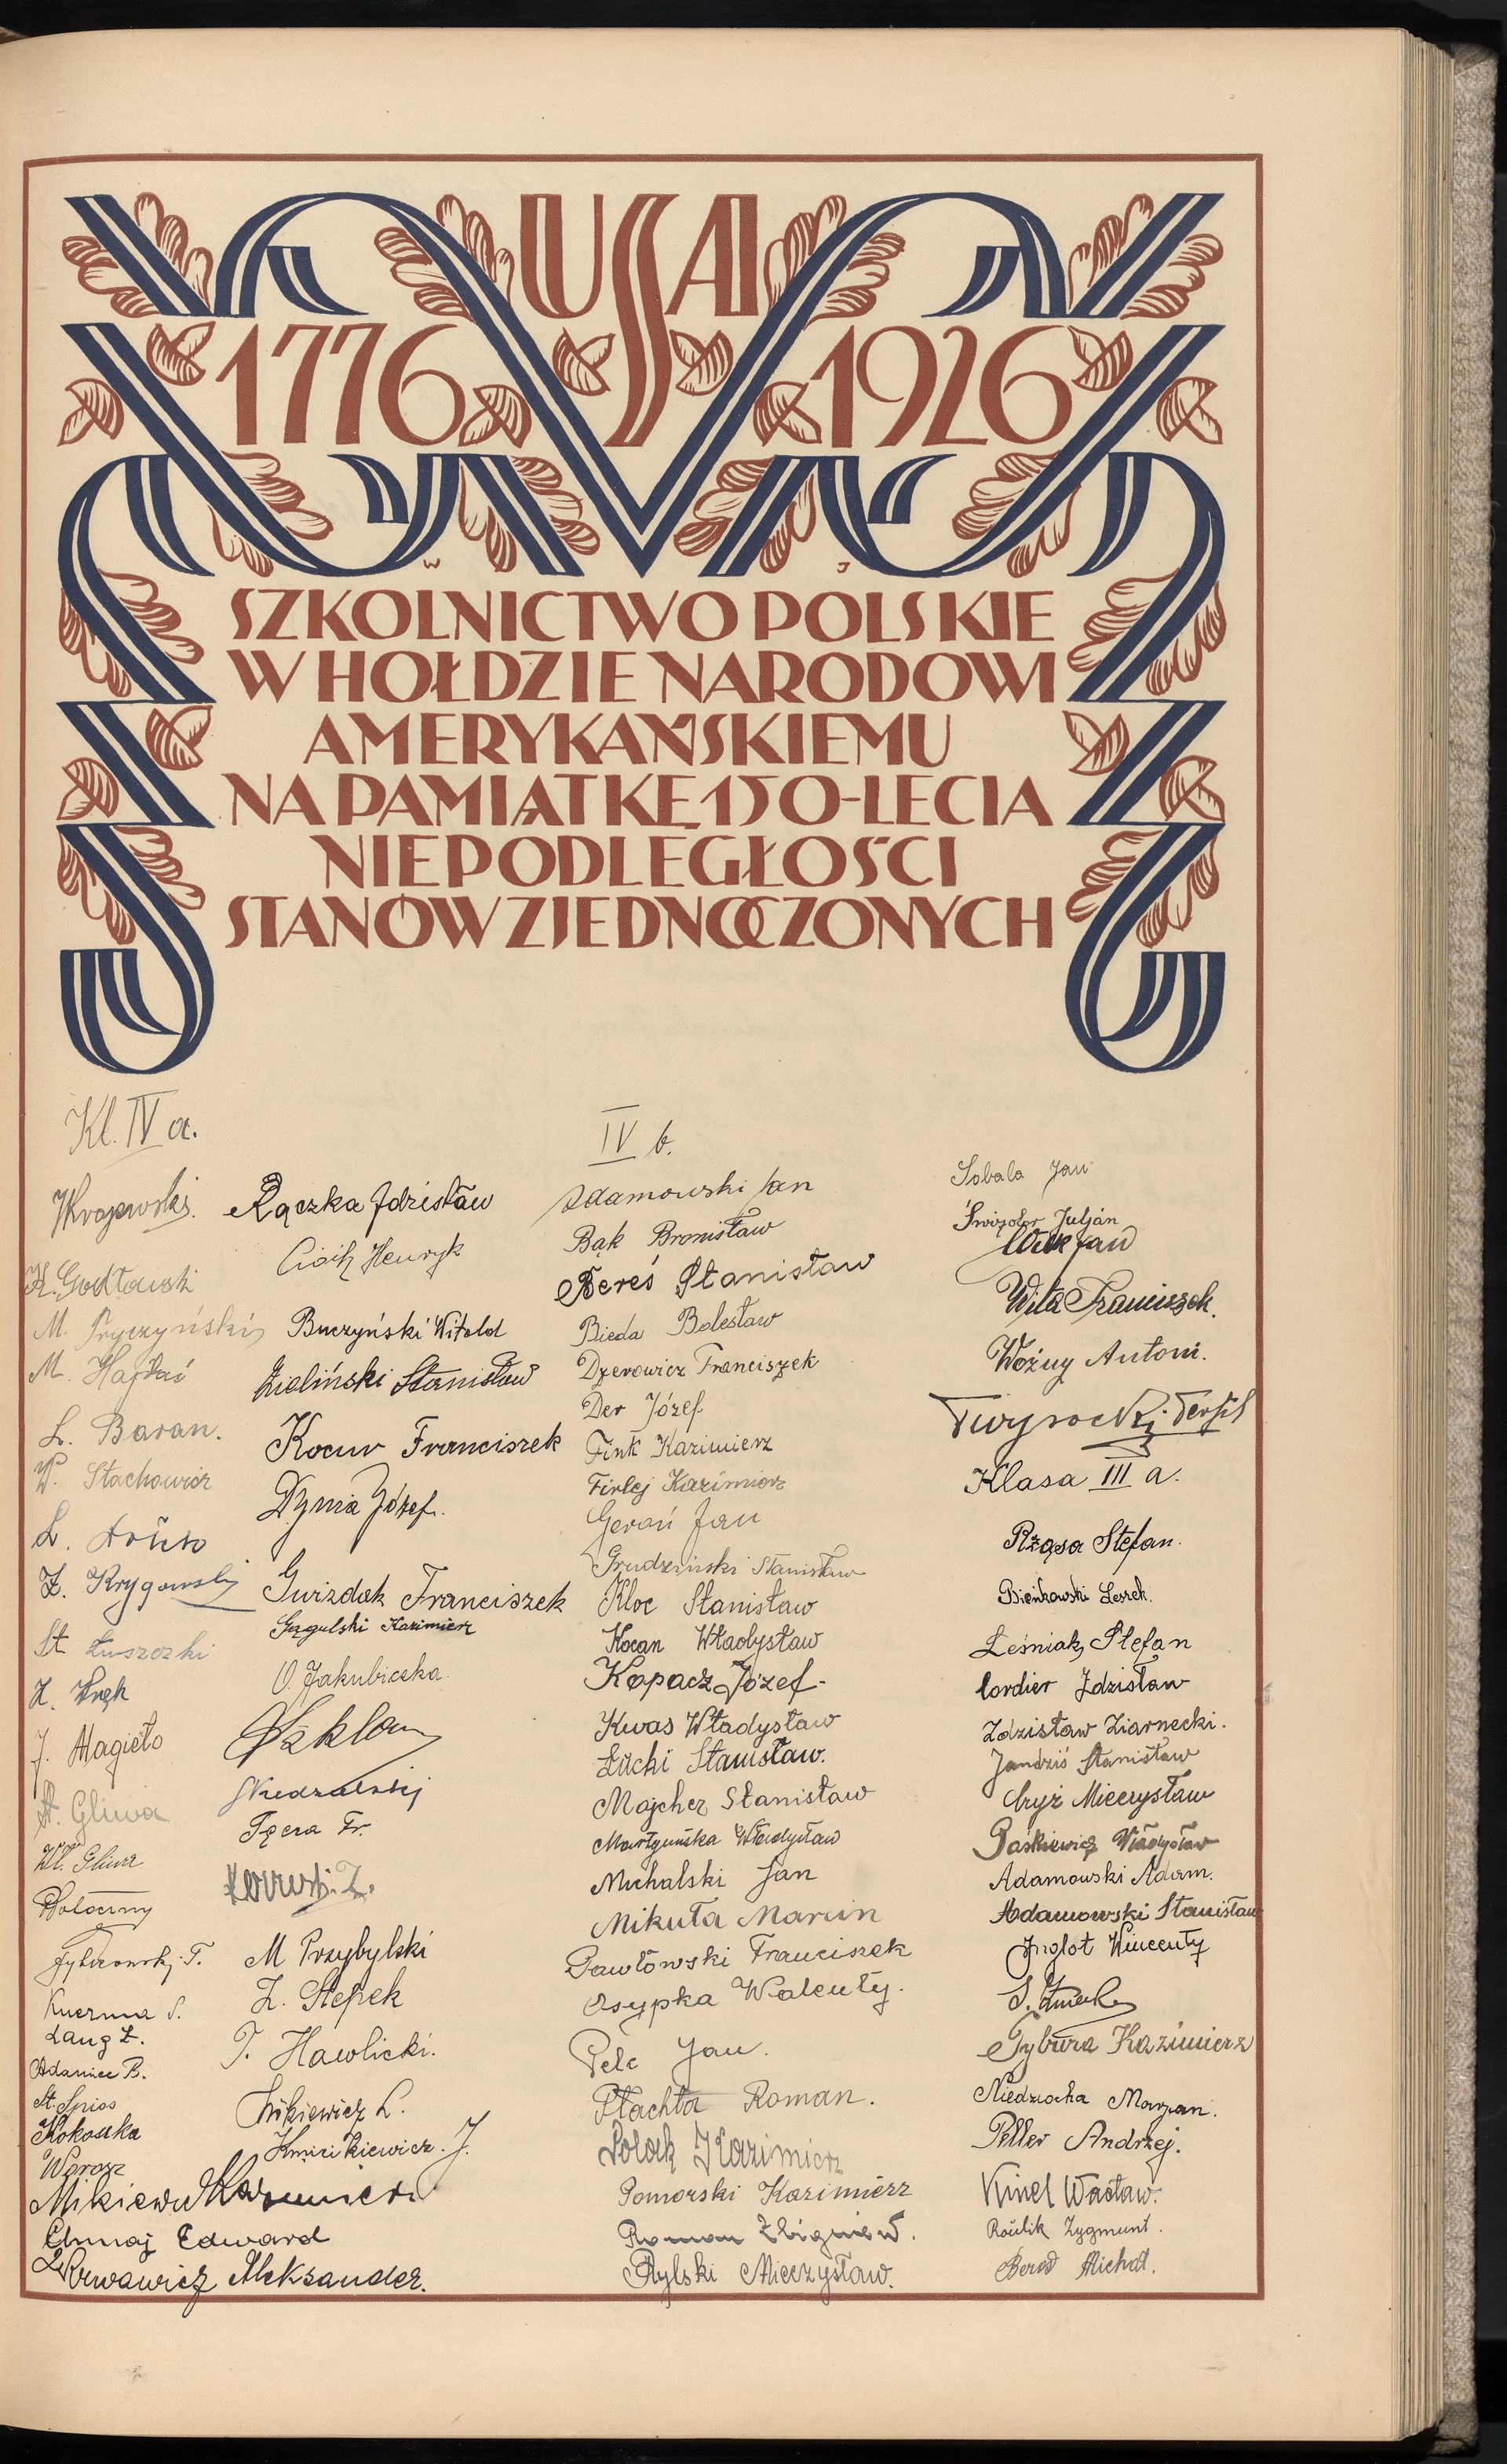 USA
1776 1926
W J
SZKOLNICTWO POLSKIE
W HOŁDZIE NARODOWI
AMERYKAŃSKIEMU
NA PAMIĄTKĘ 150-LECIA
NIEPODLEGŁOŚCI
STANÓW ZJEDNOCZONYCH
Kl. IV a.
Krajewski.
K. Godłowski
M.
M. Hajdaś
L. Baran.
W. Stachowicz
L.
Z. Krygowski
St Łuszczki
Z. Wnęk
J. Magieło
A. Gliwa
Wł. Gliwa
Kuczma S.
Lang Z.
Adamiec B.
St. Spios
Kokoszka
Worosz
Mikiewicz Kazimierz
Chmaj Edward
Nawawicz Aleksander.
Rączka Zdzisław
Henryk
Buczyński Witold
Zieliński Stanisław
Kocur Franciszek
Dymia Józef.
Gwizdak Franciszek
Gagulski Kazimierz
O. Jakubiczka.
Niedzielskij
Tęcza Fr.
M Przybylski
Z. Stepek
T. Hawlicki.
L.
Kmicikiewicz. J.
IV b.
Adamowski Jan
Bąk Bronisław
Bereś Stanisław
Bieda Bolesław
Dzerowicz Franciszek
Der Józef
Fink Kazimierz
Firlej Kazimierz
Geroń Jan
Grudziński Stanisław
Kloc Stanisław
Kocan Władysław
Kopacz Józef-
Kwas Władysław
Łucki Stanisław.
Majcher Stanisław
Martyńska Władysław
Michalski Jan
Mikuła Marcin
Pawłowski Franciszek
Osypka Walenty.
Pelc Jan.
Płachta Roman.
Polak Kazimierz
Pomorski Kazimierz
Roman Zbigniew.
Rylski Mieczysław.
Sobala Jan
Świzdor Julján
Jan
Wita Franciszek.
Woźny Antoni.
Twysocki Teofil
Klasa III a.
Rząsa Stefan.
Bieńkowski Leszek.
Leśniak, Stefan
Cordier Zdzisław
Zdzisław Ziarnecki.
Jandziś Stanisław
Cryż Mieczysław
Paśkiewicz Władysław
Adamowski Adam.
Adamowski Stanisław
Inglot Wincenty
S.
Cybura Kazimierz
Niedziocha Marjan.
Peller Andrzej.
Kinel Wacław.
Roúlik Zygmunt.
Michał.